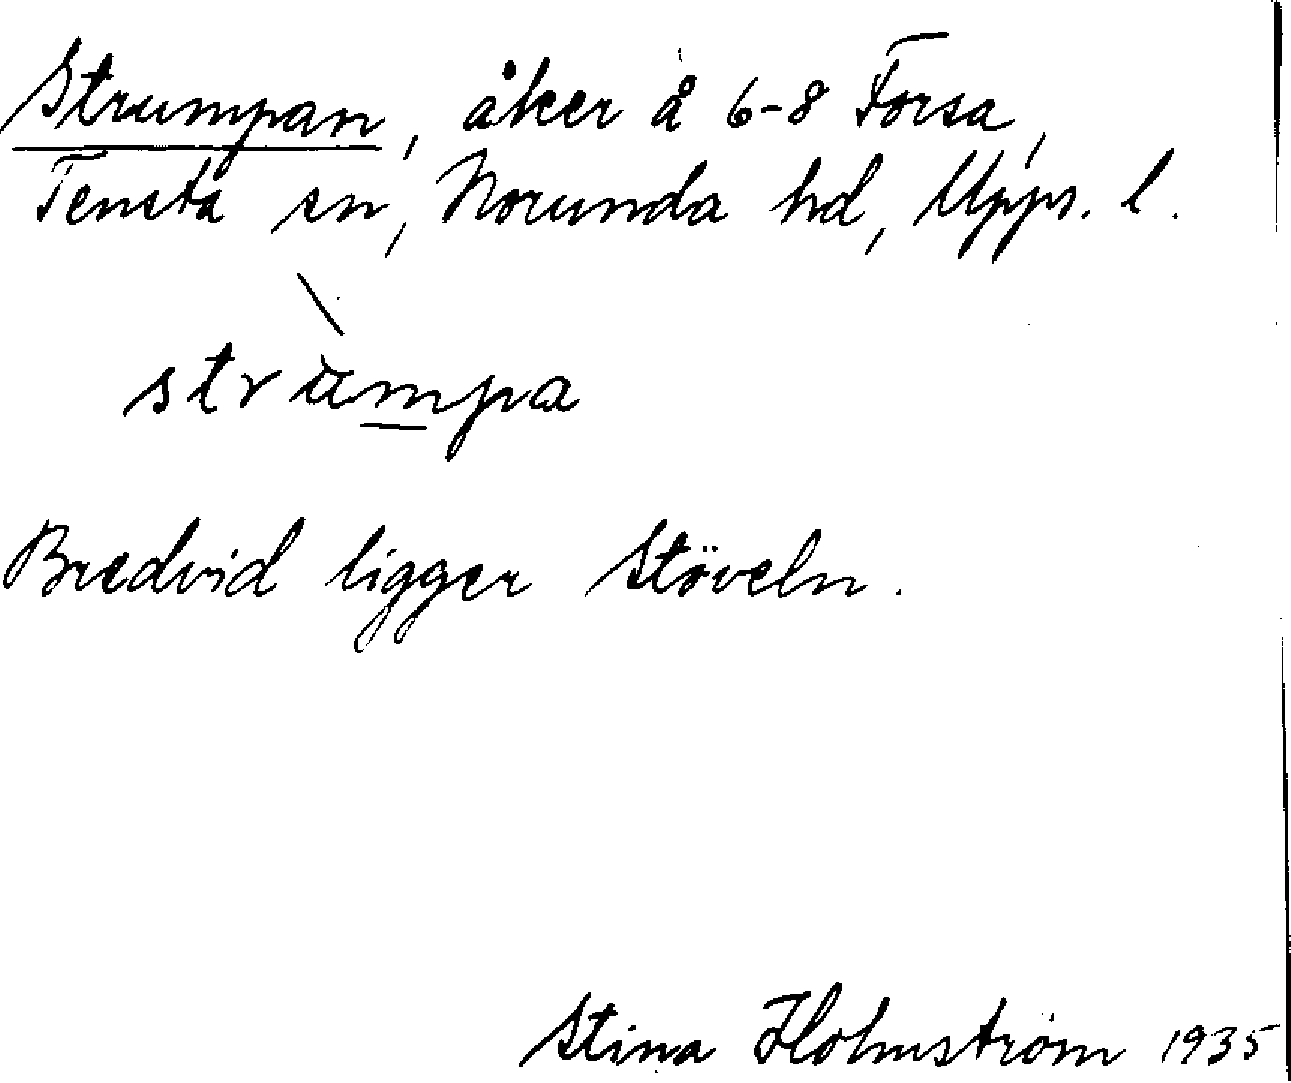 Strumpan, åker å 6-8 Forsa,
Tensta sn, Norunda hd, Upps. l.
strùmpa
Bredvid ligger Stöveln.
Stina Holmström 1935